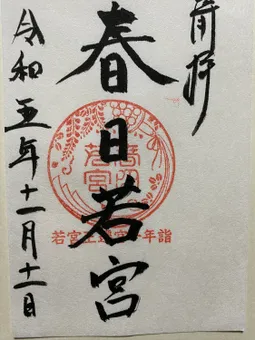 奉拝
春日若宮
令和五年十一月十一日
若宮
年詣